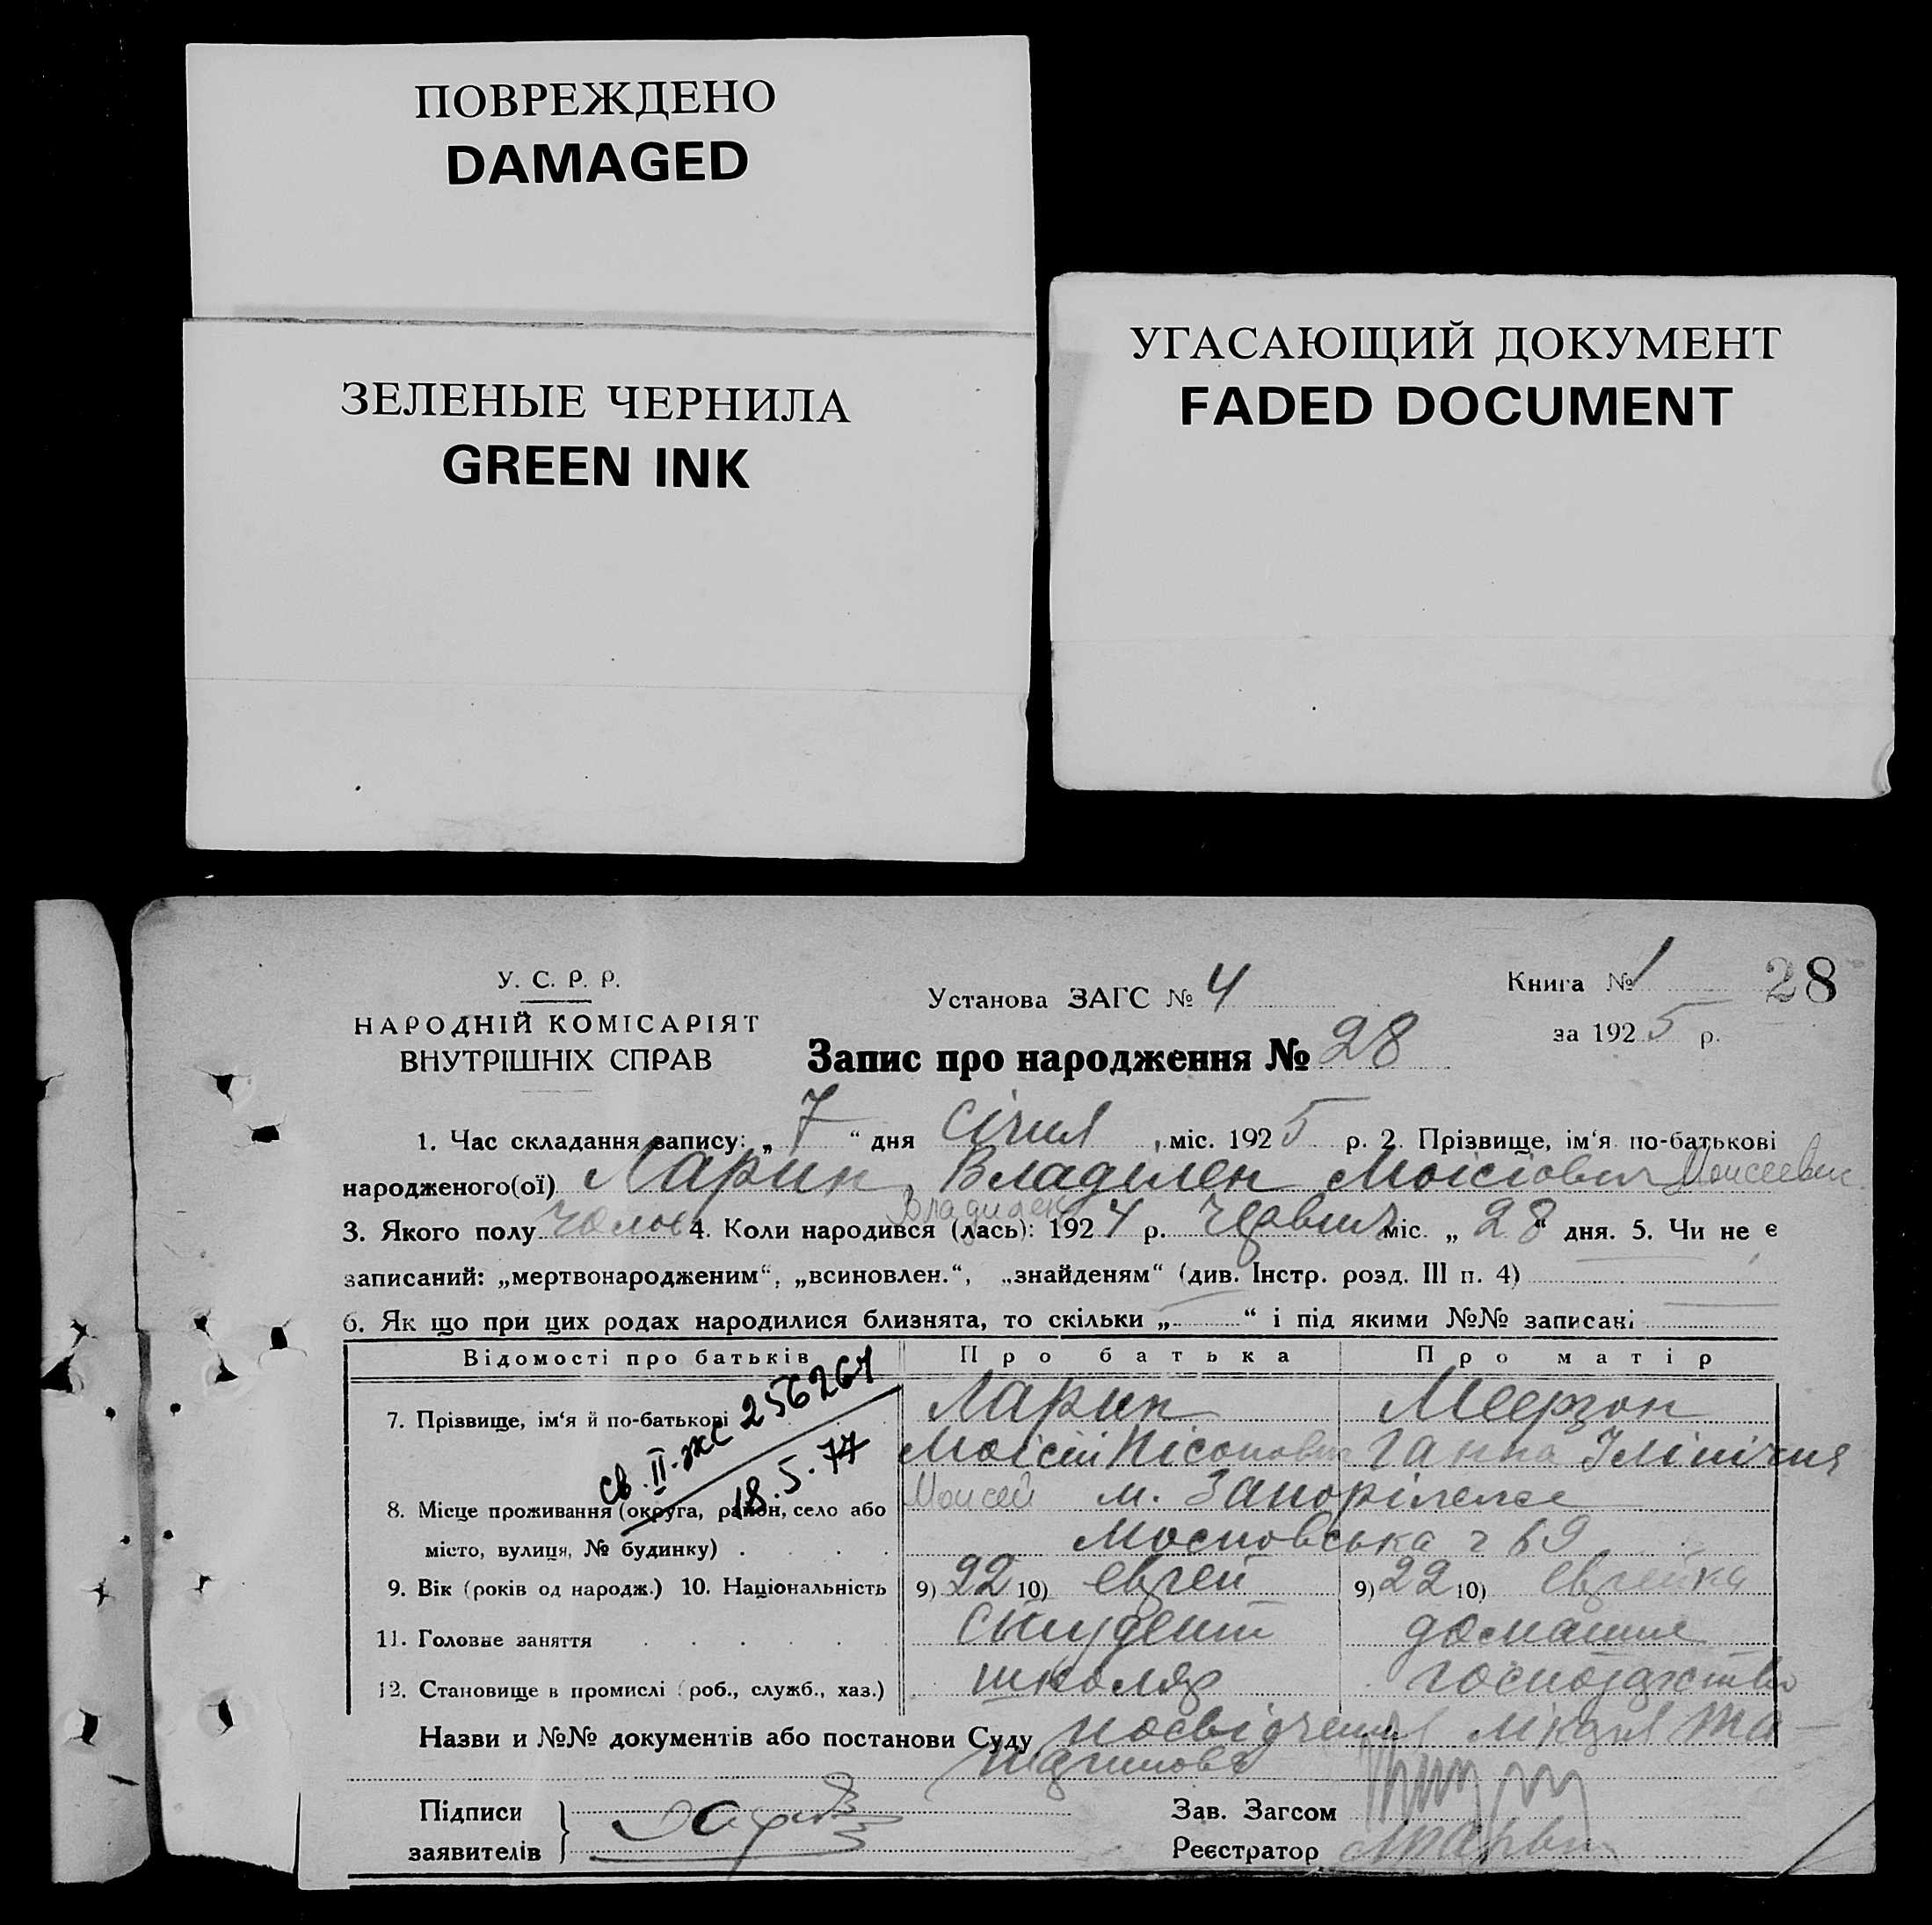 ПОВРЕЖДЕНО
DAMAGED
ЗЕЛЕНЫЕ ЧЕРНИЛА
GREEN INK
УГАСАЮЩИЙ ДОКУМЕНТ
FADED DOCUMENT
У. С. Р. Р.
НАРОДНІЙ КОМІСАРІЯТ
ВНУТРІШНІХ СПРАВ
Установа ЗАГС № 4
Книга № 1
28
за 1925 р.
Запис про народження № 28
1. Час складання запису: „ 7 “ дня Січня, міс. 1925 р. 2. Прізвище, ім‘я по-батькові
народженого(ої) Ларин Владилен Моісіович Моисеевич
Владилен
3. Якого полу чолов 4. Коли народився (лась): 1924 р. Червня міс. „ 28 “ дня. 5. Чи не є
записаний: „мертвонародженим“, „всиновлен.“, „знайденям“ (див. Інстр. розд. III п. 4)
6. Як що при цих родах народилися близнята, то скільки „ — “ і під якими №№ записані —
Відомості про батьків Про батька Про матір
7. Прізвище, ім‘я й по-батькові Ларин Меерзон
Моісій Ганна
св. II-жс 256261
18.5.77
8. Місце проживання (округа, район, село або Моисей м. Запоріжжє
місто, вулиця, № будинку) Московська
9. Вік (років од народж.) 10. Національність 9) 22 10) еврей 9) 22 10) еврейка
11. Головне заняття студент домашне
12. Становище в промислі (роб., служб., хаз.) школяр господарство
Назви и №№ документів або постанови Суду посвідчення лікаря
Підписи
заявителів
Зав. Загсом
Реєстратор